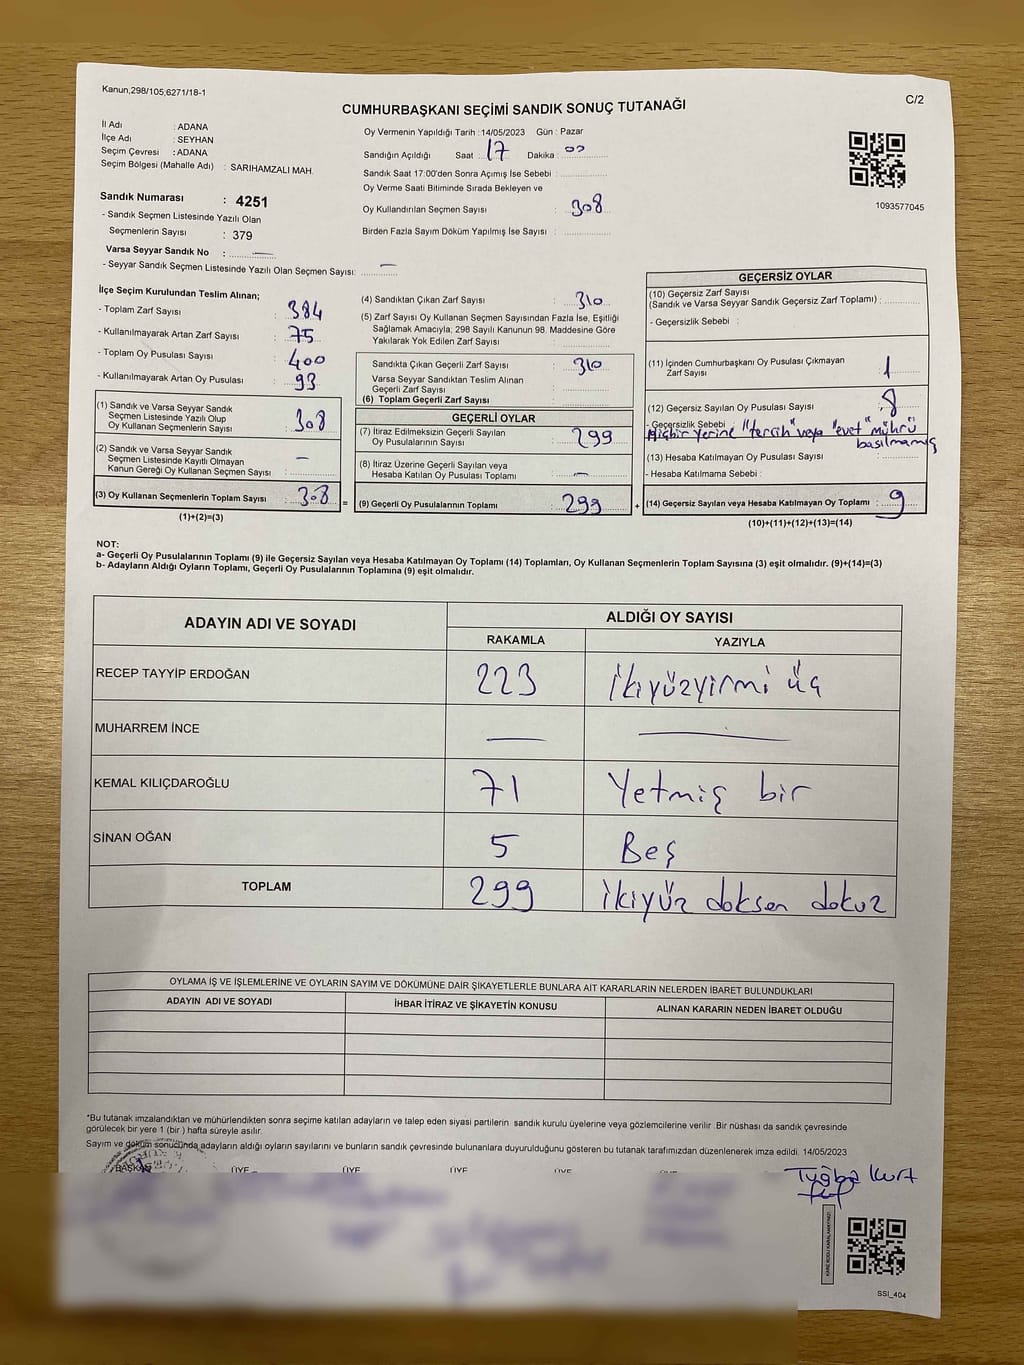 Kanun,298/105,6271/18-1
C/2
CUMHURBAŞKANI SEÇİMİ SANDIK SONUÇ TUTANAĞI
İl Adı : ADANA
İlçe Adı : SEYHAN
Seçim Çevresi : ADANA
Seçim Bölgesi (Mahalle Adı) : SARIHAMZALI MAH.
Sandık Numarası : 4251
- Sandık Seçmen Listesinde Yazılı Olan
Seçmenlerin Sayısı : 379
Varsa Seyyar Sandık No : —
- Seyyar Sandık Seçmen Listesinde Yazılı Olan Seçmen Sayısı: —
Oy Vermenin Yapıldığı Tarih :14/05/2023 Gün : Pazar
Sandığın Açıldığı Saat : 17 Dakika : 00
Sandık Saat 17:00'den Sonra Açımış İse Sebebi :
Oy Verme Saati Bitiminde Sırada Bekleyen ve
Oy Kullandırılan Seçmen Sayısı : 308
Birden Fazla Sayım Döküm Yapılmış İse Sayısı :
1093577045
İlçe Seçim Kurulundan Teslim Alınan;
- Toplam Zarf Sayısı : 384
- Kullanılmayarak Artan Zarf Sayısı : 75
- Toplam Oy Pusulası Sayısı : 400
- Kullanılmayarak Artan Oy Pusulası : 93
(1) Sandık ve Varsa Seyyar Sandık
Seçmen Listesinde Yazılı Olup
Oy Kullanan Seçmenlerin Sayısı : 308
(2) Sandık ve Varsa Seyyar Sandık
Seçmen Listesinde Kayıtlı Olmayan
Kanun Gereği Oy Kullanan Seçmen Sayısı : —
(3) Oy Kullanan Seçmenlerin Toplam Sayısı : 308 =
(1)+(2)=(3)
(4) Sandıktan Çıkan Zarf Sayısı : 310
(5) Zarf Sayısı Oy Kullanan Seçmen Sayısından Fazla İse, Eşitliği
Sağlamak Amacıyla; 298 Sayılı Kanunun 98. Maddesine Göre
Yakılarak Yok Edilen Zarf Sayısı :
Sandıkta Çıkan Geçerli Zarf Sayısı : 310
Varsa Seyyar Sandıktan Teslim Alınan
Geçerli Zarf Sayısı :
(6) Toplam Geçerli Zarf Sayısı :
GEÇERLİ OYLAR
(7) İtiraz Edilmeksizin Geçerli Sayılan
Oy Pusulalarının Sayısı : 299
(8) İtiraz Üzerine Geçerli Sayılan veya
Hesaba Katılan Oy Pusulası Toplamı : —
(9) Geçerli Oy Pusulalarının Toplamı : 299 +
GEÇERSİZ OYLAR
(10) Geçersiz Zarf Sayısı
(Sandık ve Varsa Seyyar Sandık Geçersiz Zarf Toplamı) :
- Geçersizlik Sebebi :
(11) İçinden Cumhurbaşkanı Oy Pusulası Çıkmayan
Zarf Sayısı : 1
(12) Geçersiz Sayılan Oy Pusulası Sayısı : 8
- Geçersizlik Sebebi
Hiçbir yerine "tercih" veya "evet" mührü
basılmamış
(13) Hesaba Katılmayan Oy Pusulası Sayısı :
- Hesaba Katılmama Sebebi :
(14) Geçersiz Sayılan veya Hesaba Katılmayan Oy Toplamı : 9
(10)+(11)+(12)+(13)=(14)
NOT:
a- Geçerli Oy Pusulalarının Toplamı (9) ile Geçersiz Sayılan veya Hesaba Katılmayan Oy Toplamı (14) Toplamları, Oy Kullanan Seçmenlerin Toplam Sayısına (3) eşit olmalıdır. (9)+(14)=(3)
b- Adayların Aldığı Oyların Toplamı, Geçerli Oy Pusulalarının Toplamına (9) eşit olmalıdır.
ADAYIN ADI VE SOYADI ALDIĞI OY SAYISI
RAKAMLA YAZIYLA
RECEP TAYYİP ERDOĞAN 223 İkiyüzyirmi üç
MUHARREM İNCE — —
KEMAL KILIÇDAROĞLU 71 Yetmiş bir
SİNAN OĞAN 5 Beş
TOPLAM 299 İkiyüz doksan dokuz
OYLAMA İŞ VE İŞLEMLERİNE VE OYLARIN SAYIM VE DÖKÜMÜNE DAİR ŞİKAYETLERLE BUNLARA AİT KARARLARIN NELERDEN İBARET BULUNDUKLARI
ADAYIN ADI VE SOYADI İHBAR İTİRAZ VE ŞİKAYETİN KONUSU ALINAN KARARIN NEDEN İBARET OLDUĞU
*Bu tutanak imzalandıktan ve mühürlendikten sonra seçime katılan adayların ve talep eden siyasi partilerin sandık kurulu üyelerine veya gözlemcilerine verilir. Bir nüshası da sandık çevresinde
görülecek bir yere 1 (bir ) hafta süreyle asılır.
Sayım ve döküm sonucunda adayların aldığı oyların sayılarını ve bunların sandık çevresinde bulunanlara duyurulduğunu gösteren bu tutanak tarafımızdan düzenlenerek imza edildi. 14/05/2023
BAŞKAN ÜYE ÜYE ÜYE ÜYE ÜYE
Tuğba Kurt
SSI_404